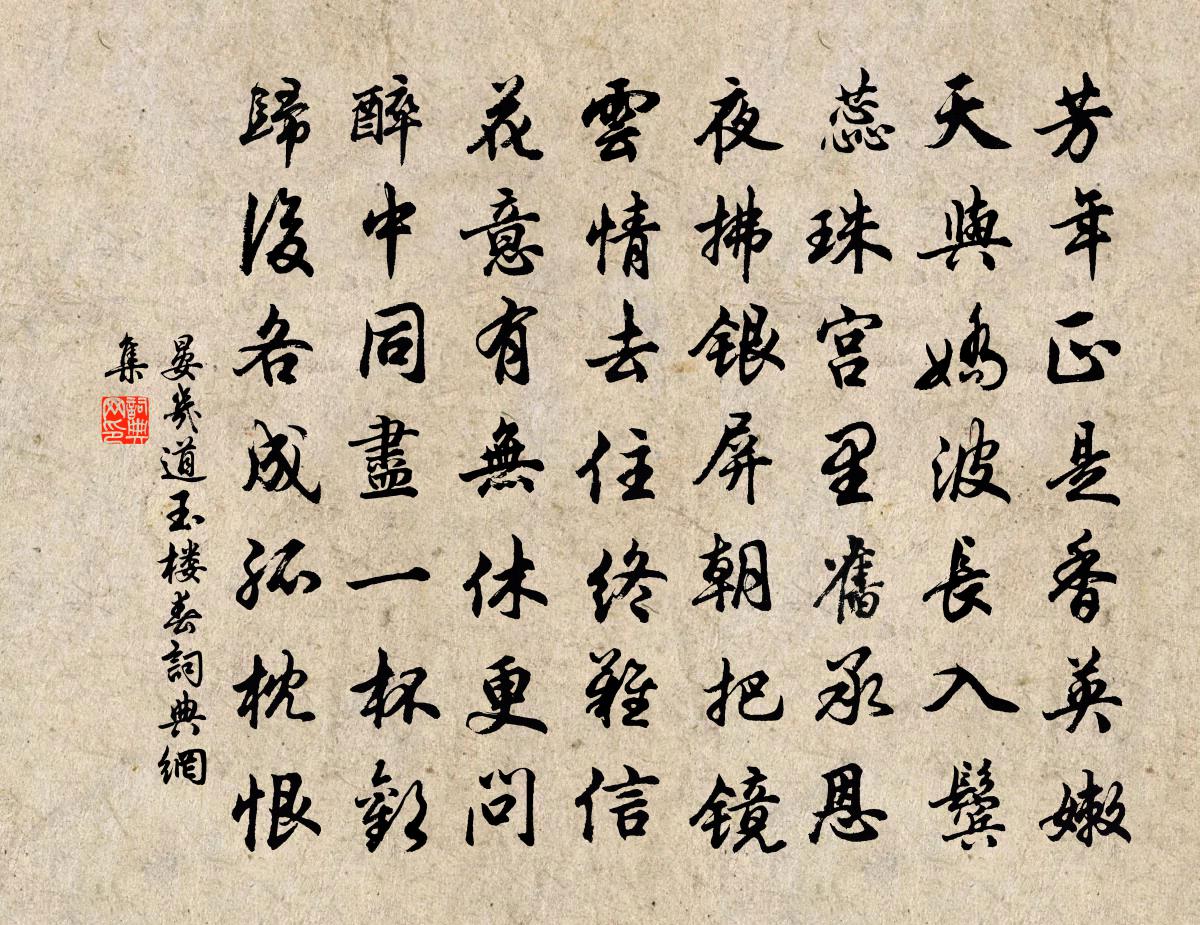 芳年正是香英嫩
天與嬌波長入鬢
蕊珠宫里舊承恩
夜拂銀屏朝把镜
雲情去住終難信
花意有無休更問
醉中同盡一杯歡
歸後各成孤枕恨
晏幾道玉楼春詞典網
集
詞典
网印